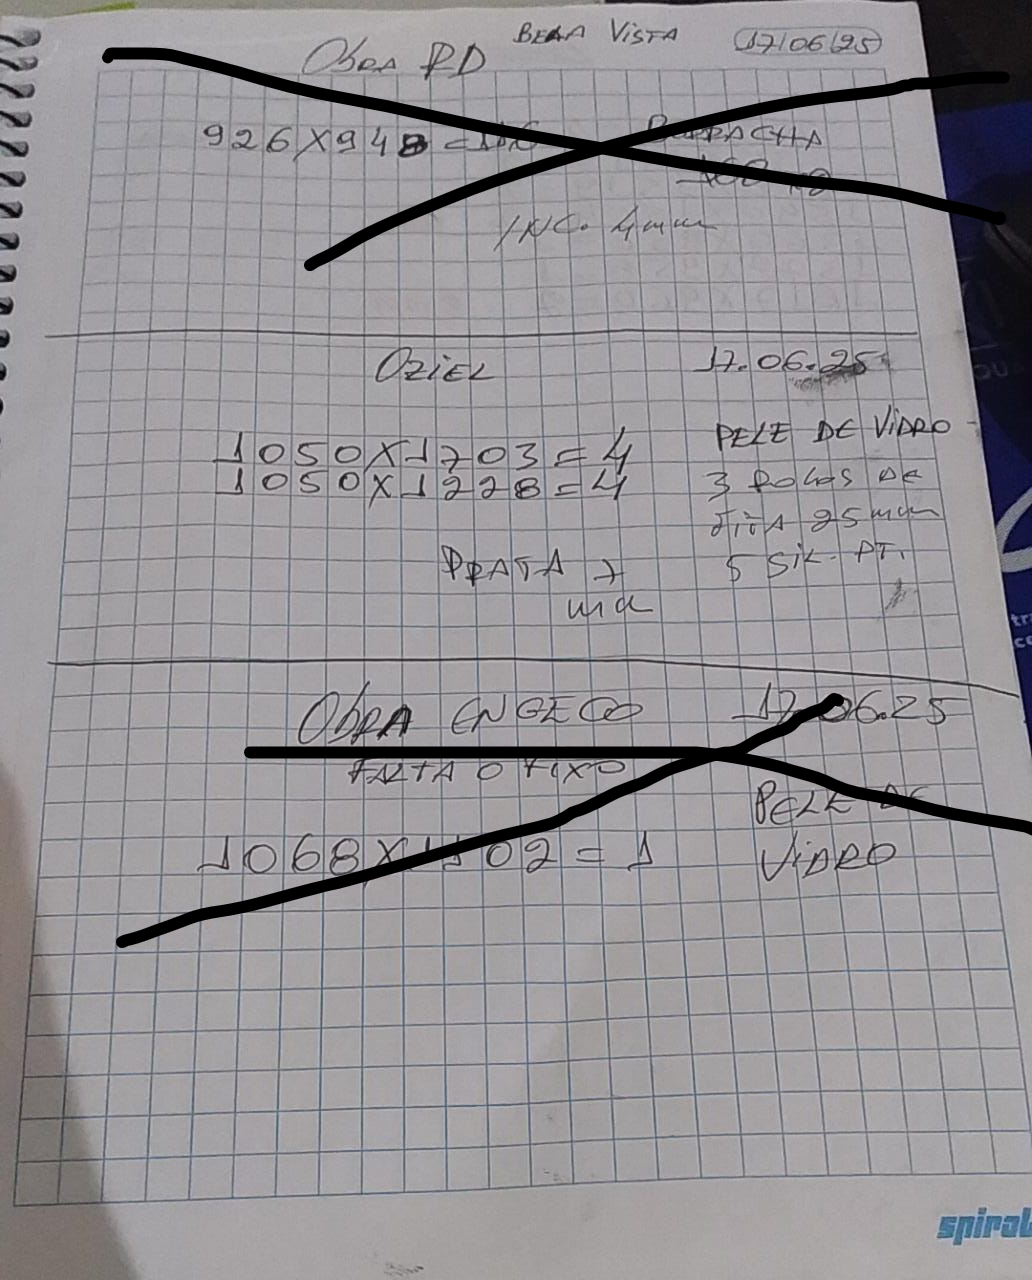 BELLA VISTA
17/06/25
Obra RD
926X948 =
BORRACHA
100 Kg
INC. 4mm
OZIEL 17.06.25
1050X1703=4
1050X1228=4
PELE DE VIDRO
3 ROLOS DE
FITA 25 mm
5 SIK. PT.
PRATA
Obra ENGECO 17.06.25
FALTA O FIXO
1068X1102=1
PELE DE
VIDRO
spiral